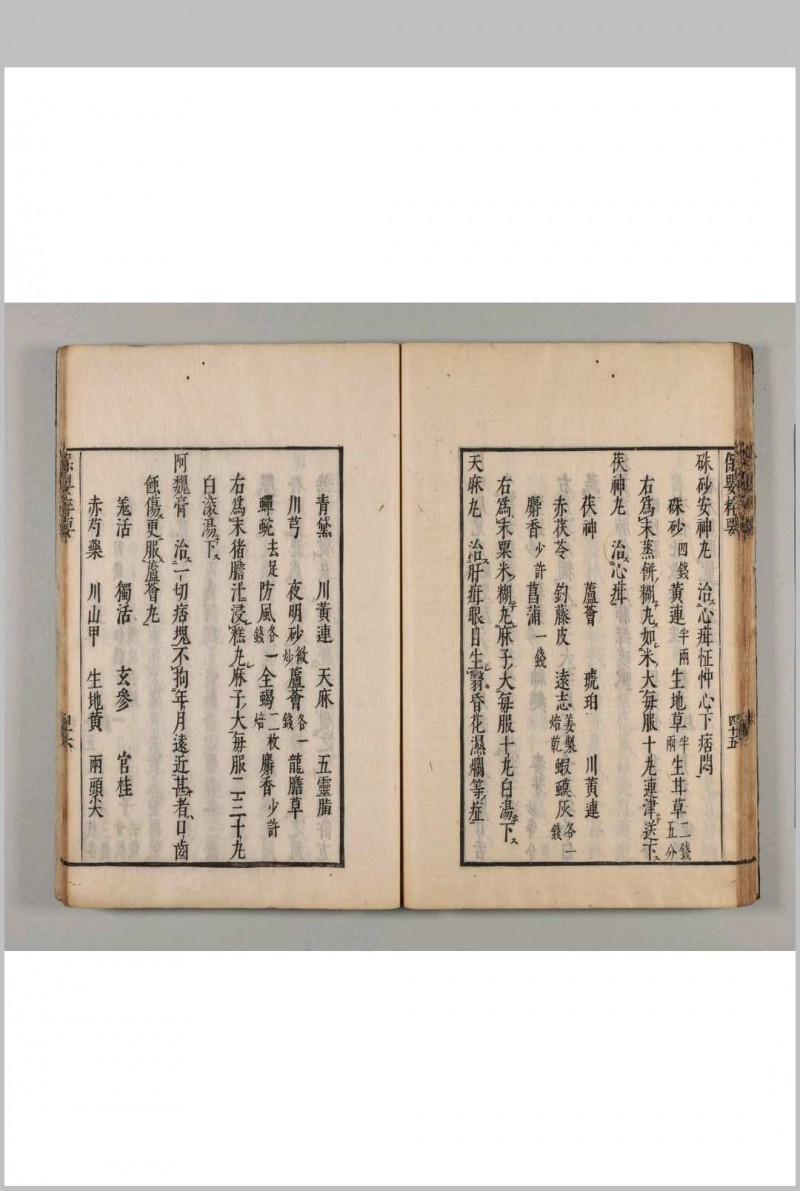 保嬰粹要
四十五
硃砂安神丸　治心疳怔忡心下痞悶
硃砂四錢　黃連半兩　生地草半兩　生茸草二錢五分
右爲末蒸餅糊丸如米大每服十丸連津送下ス
茯神丸　治心疳
茯神　蘆薈　琥珀　川黃連
赤茯苓　釣藤皮　遠志姜製焙乾　蝦蟆灰各一錢
麝香少許　菖蒲一錢
右爲末粟米糊丸麻子大每服十丸白湯下ス
天麻丸　治肝疳眼目生翳昏花濕爛等症
青黛　川黃連　天麻　五靈脂
川芎　夜明砂微炒　蘆薈各一錢　龍膽草
蟬蛻去足　防風各一錢　全蝎二枚焙　麝香少許
右爲末猪膽汁浸糕丸麻子大每服二三十丸
白滚湯下ス
阿魏膏　治一切痞塊不狗年月遠近甚者口齒
蝕傷更服蘆薈丸
羗活　獨活　玄參　官桂
赤芍藥　川山甲　生地黃　兩頭尖
保嬰粹要
四十六